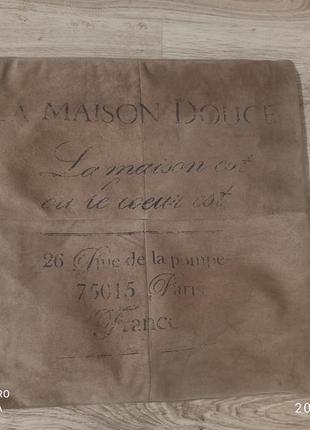 LA MAISON DOUCE
La maison est
ou le coeur est
26 Rue de la pompe
75015 Paris
France
RO
A
20